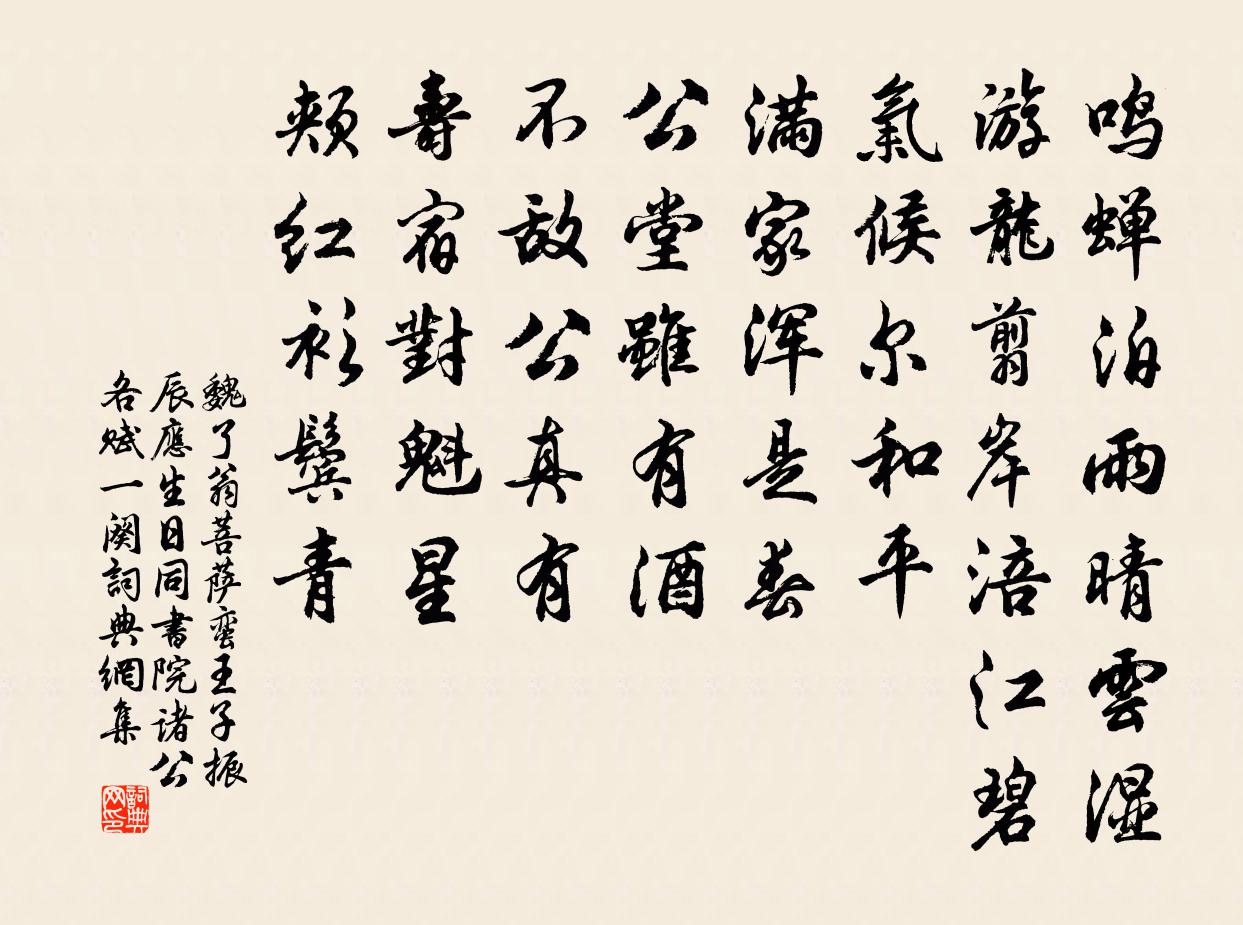 鸣蝉泊雨晴雲湿
游龍翦岸涪江碧
氣候尔和平
满家浑是春
公堂雖有酒
不敌公真有
壽宿對魁星
颊红衫鬓青
魏了翁菩萨蛮王子振
辰應生日同書院诸公
各赋一阕詞典網集
詞典网印